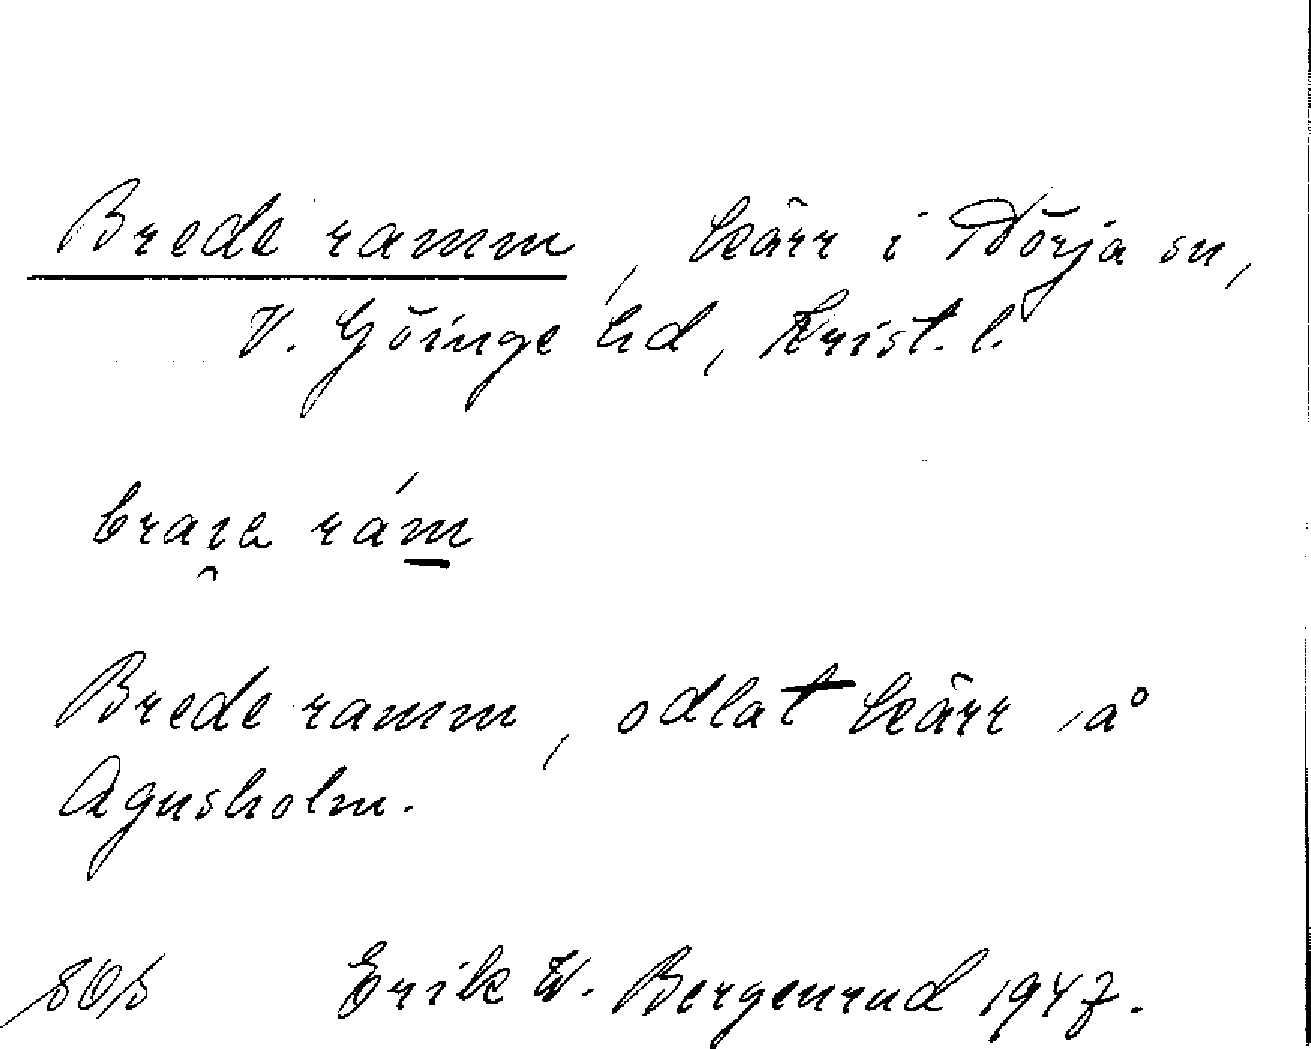 Brede ramm, kärr i Nörja sn,
V. Göinge hd, Krist. l.
braıa rám
Brede ramm, odlat kärr på
Agusholm.
Erik W. Bergenrud 1947.